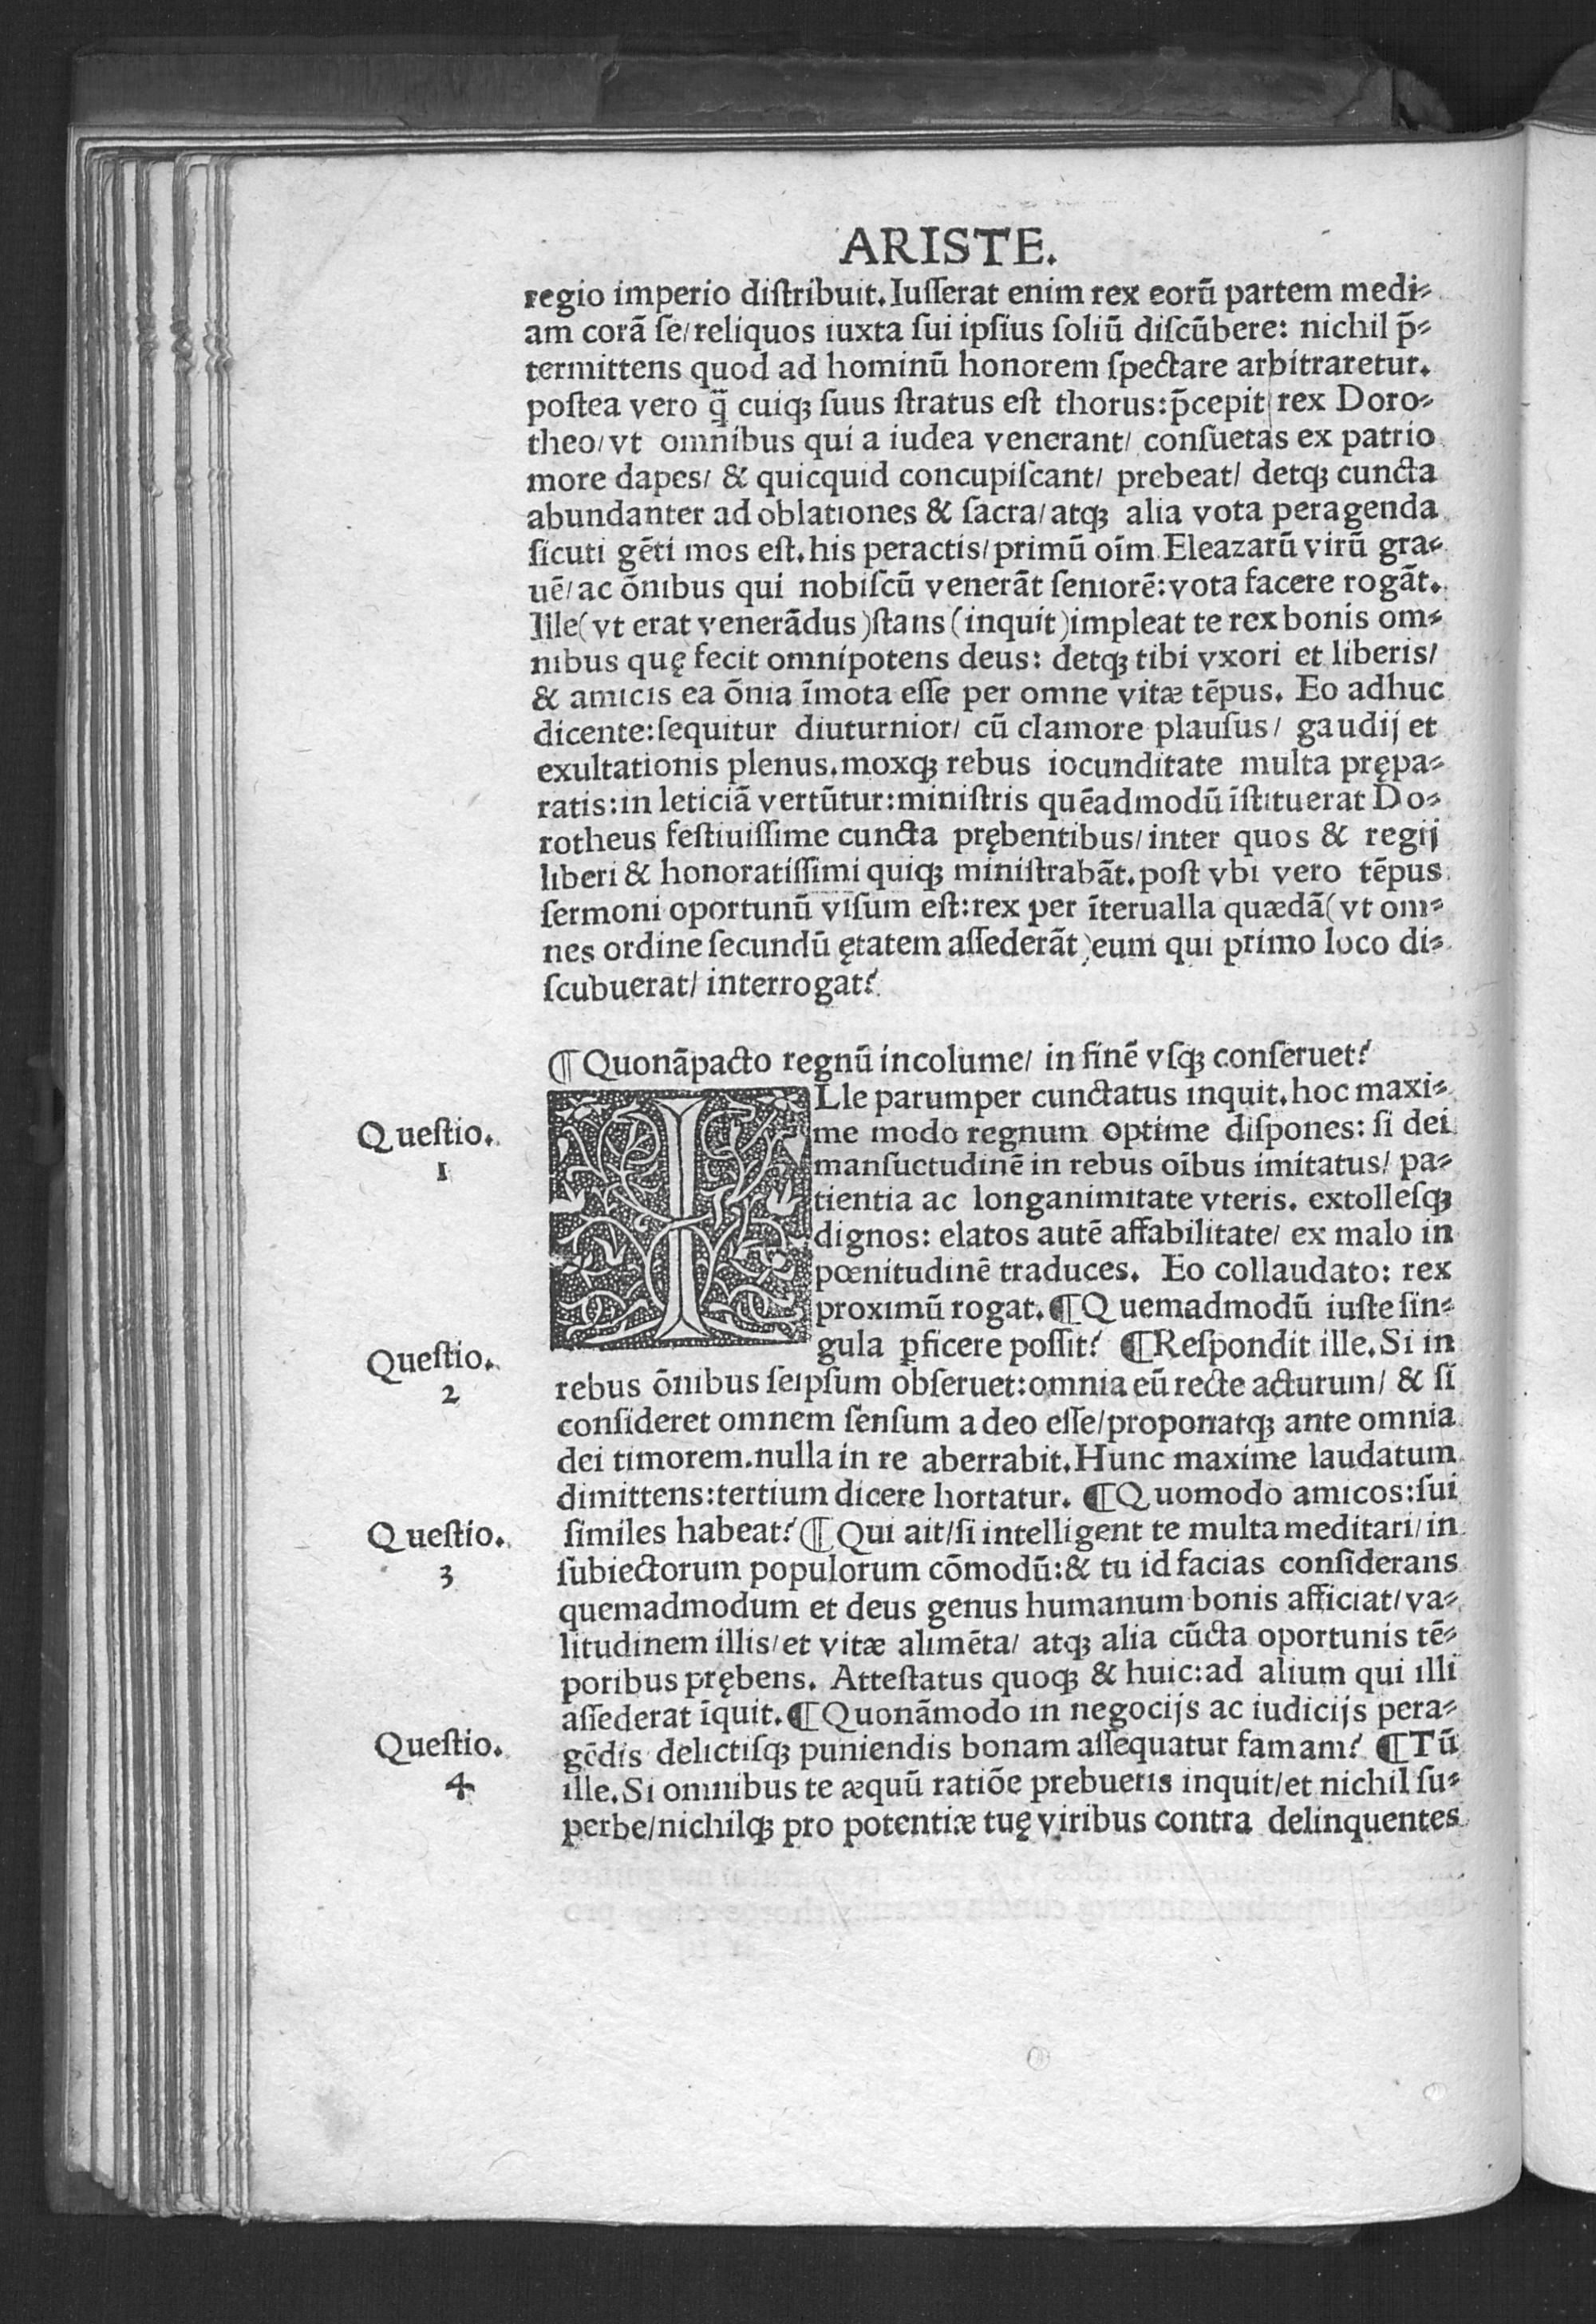 ARISTE.
regio imperio diſtribuit. Iuſſerat enim rex eorũ partem medi⸗
am corã ſe/ reliquos iuxta ſui ipſius ſoliũ diſcũbere: nichil p̃⸗
termittens quod ad hominũ honorem ſpectare arbitraretur.
poſtea vero q̃ cuiqꝫ ſuus ſtratus eſt thorus: p̃cepit rex Doro⸗
theo/ vt omnibus qui a iudea venerant/ conſuetas ex patrio
more dapes/ & quicquid concupiſcant/ prebeat/ detqꝫ cuncta
abundanter ad oblationes & ſacra/ atqꝫ alia vota peragenda
ſicuti gẽti mos eſt. his peractis/ primũ oĩm Eleazarũ virũ gra⸗
uẽ/ ac õnibus qui nobiſcũ venerãt ſeniorẽ: vota facere rogãt.
Ille (vt erat venerãdus) ſtans (inquit) impleat te rex bonis om⸗
nibus quę fecit omnipotens deus: detqꝫ tibi vxori et liberis/
& amicis ea õnia ĩmota eſſe per omne vitæ tẽpus. Eo adhuc
dicente: ſequitur diuturnior/ cũ clamore plauſus/ gaudij et
exultationis plenus. moxqꝫ rebus iocunditate multa prępa⸗
ratis: in leticiã vertũtur: miniſtris quẽadmodũ ĩſtituerat Do⸗
rotheus feſtiuiſſime cuncta prębentibus/ inter quos & regij
liberi & honoratiſſimi quiqꝫ miniſtrabãt. poſt vbi vero tẽpus
ſermoni oportunũ viſum eſt: rex per ĩterualla quædã (vt om⸗
nes ordine ſecundũ ętatem aſſederãt) eum qui primo loco di⸗
ſcubuerat/ interrogat?
¶ Quonãpacto regnũ incolume/ in finẽ vſqꝫ conſeruet?
ILle parumper cunctatus inquit. hoc maxi⸗
Queſtio. 1
me modo regnum optime diſpones: ſi dei
manſuetudinẽ in rebus oĩbus imitatus/ pa⸗
tientia ac longanimitate vteris. extolleſqꝫ
dignos: elatos autẽ affabilitate/ ex malo in
pœnitudinẽ traduces. Eo collaudato: rex
proximũ rogat. ¶ Quemadmodũ iuste ſin⸗
gula ꝑficere poſſit? ¶ Reſpondit ille. Si in
Queſtio. 2
rebus õnibus ſeipſum obſeruet: omnia eũ recte acturum/ & ſi
conſideret omnem ſenſum a deo eſſe/ proponatqꝫ ante omnia
dei timorem. nulla in re aberrabit. Hunc maxime laudatum
dimittens: tertium dicere hortatur. ¶ Quomodo amicos: ſui
Queſtio. 3
ſimiles habeat? ¶ Qui ait/ ſi intelligent te multa meditari/ in
ſubiectorum populorum cõmodũ: & tu id facias conſiderans
quemadmodum et deus genus humanum bonis afficiat/ va⸗
litudinem illis/ et vitæ alimẽta/ atqꝫ alia cũcta oportunis tẽ⸗
poribus prębens. Atteſtatus quoqꝫ & huic: ad alium qui illi
aſſederat ĩquit. ¶ Quonãmodo in negocijs ac iudicijs pera⸗
Queſtio. 4
gẽdis delictiſqꝫ puniendis bonam aſſequatur famam? ¶ Tũ
ille. Si omnibus te æquũ ratiõe prebueris inquit/ et nichil ſu⸗
perbe/ nichilqꝫ pro potentiæ tuę viribus contra delinquentes